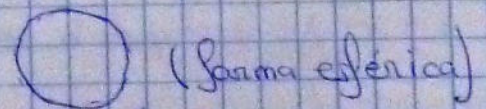 (forma esférica)